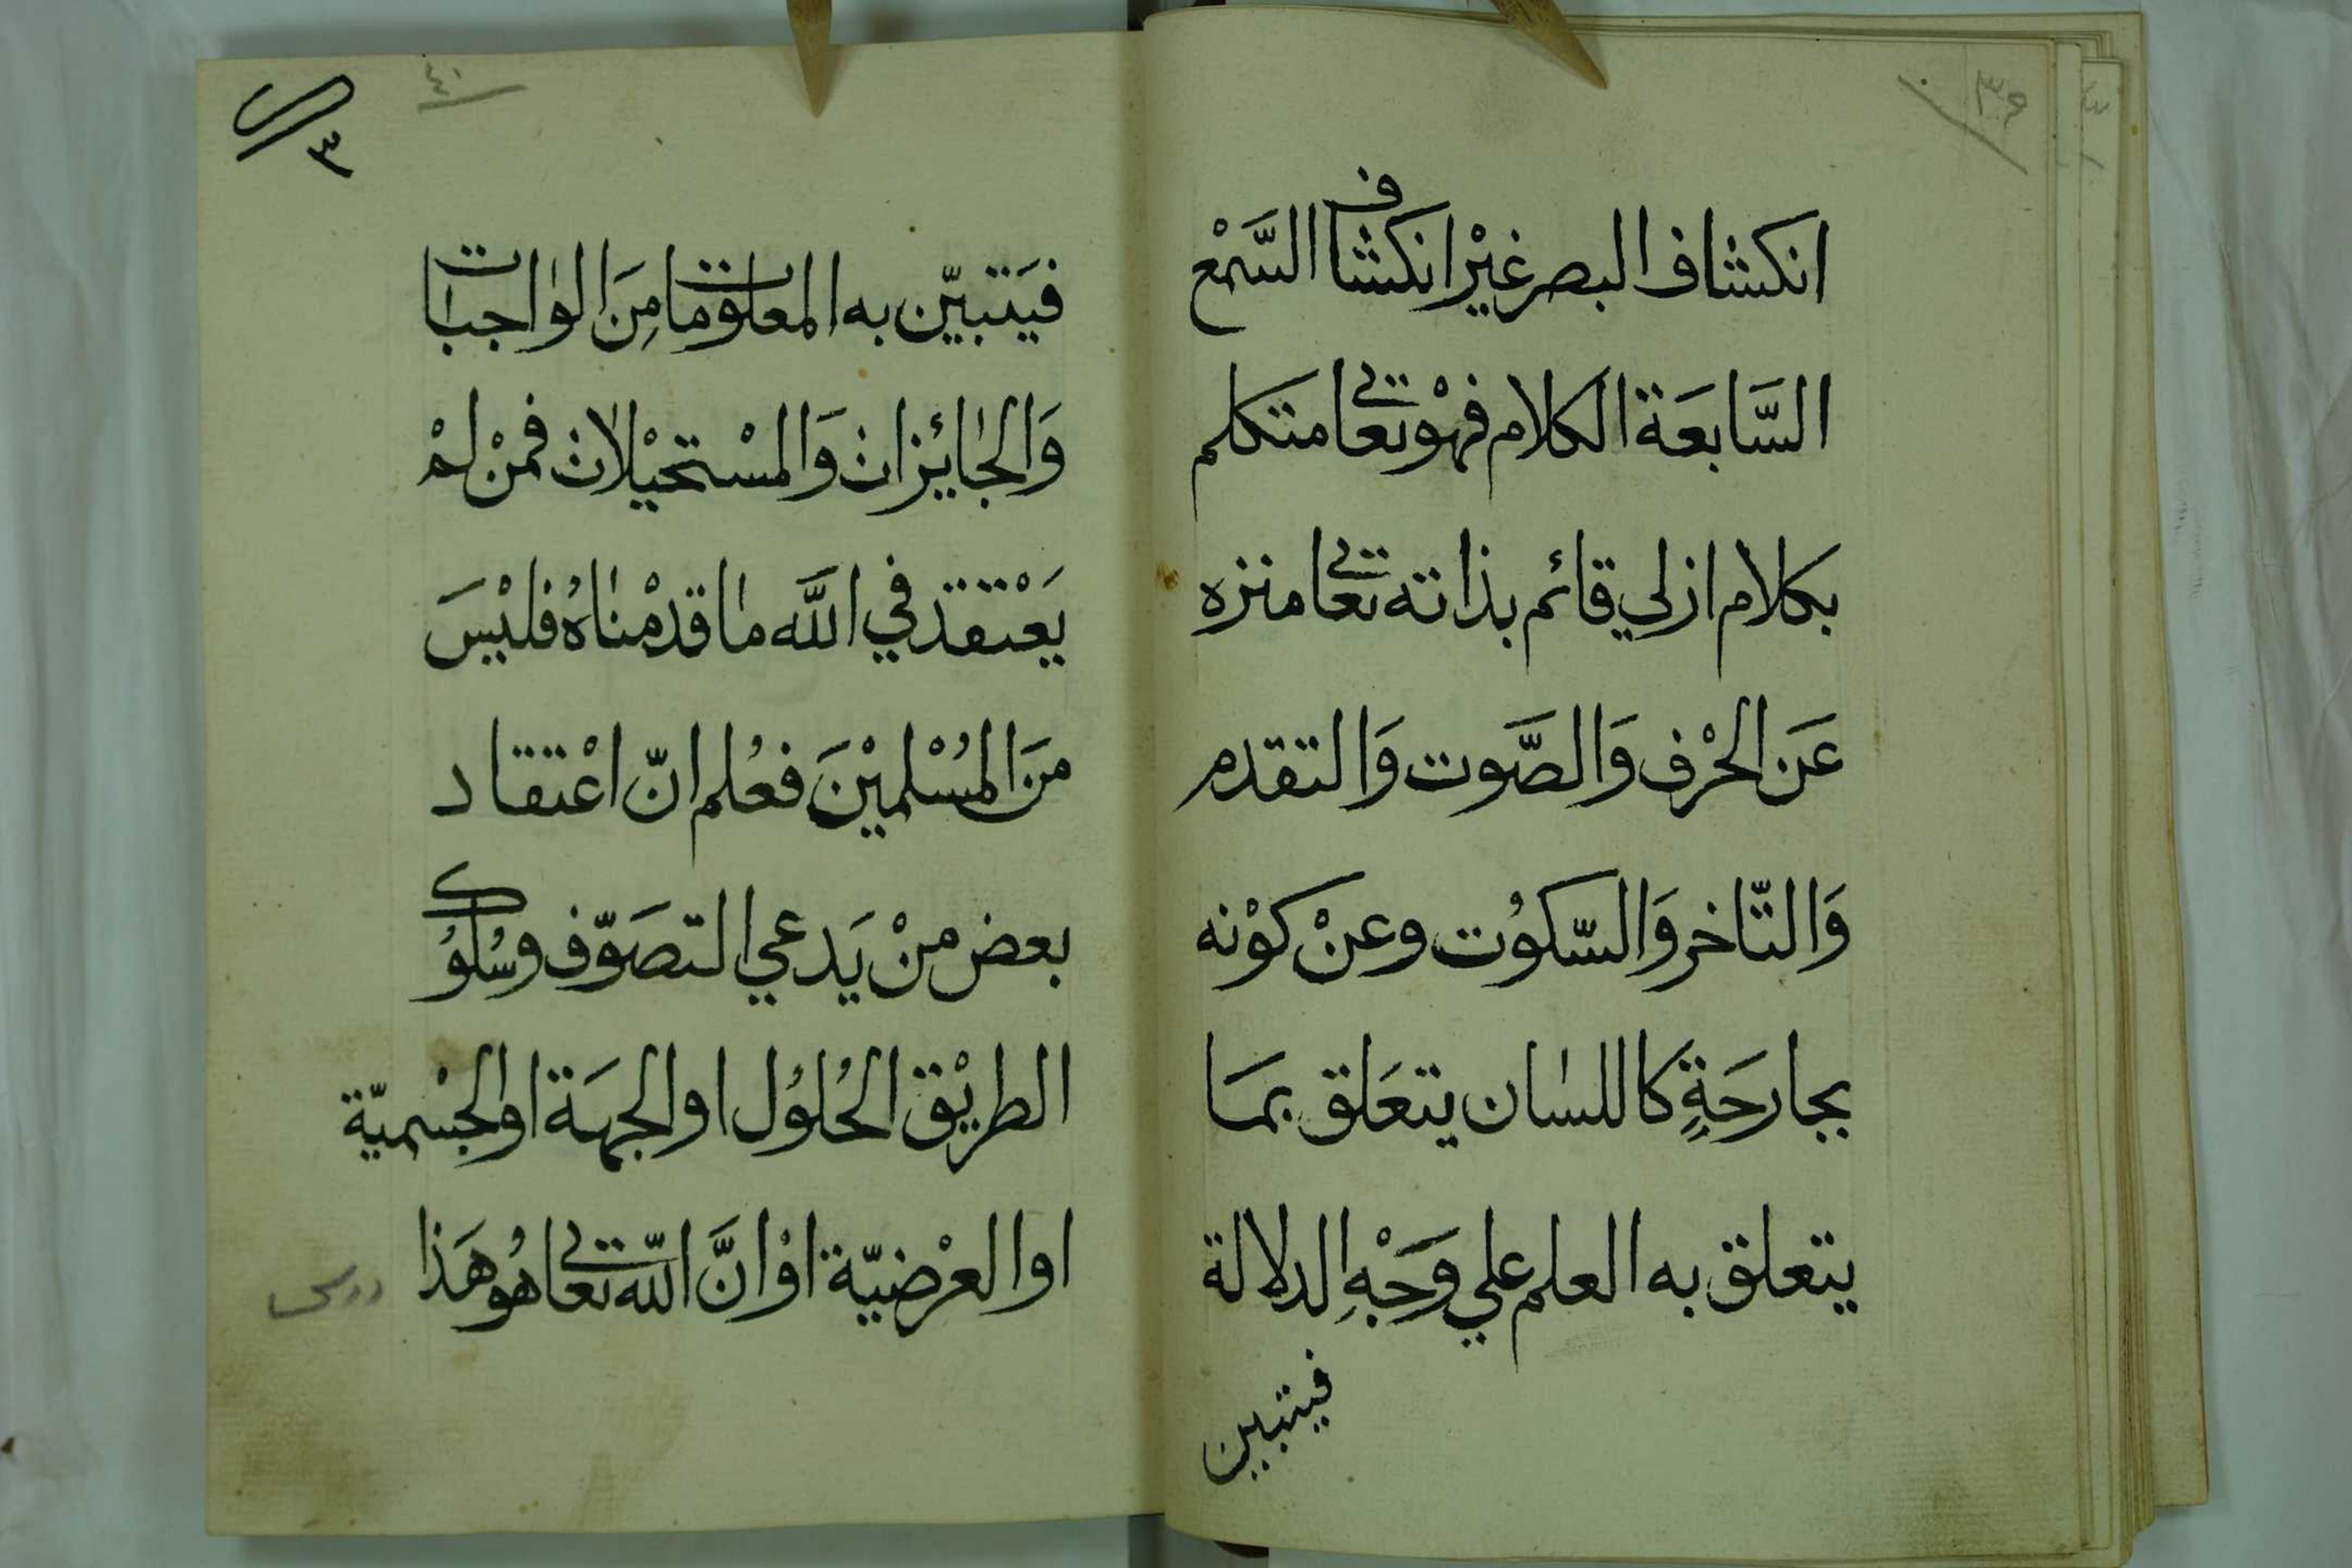 ٣٩
انكشاف البصر غيْر انكشاف السَّمْع
السَّابعَة الكلام فهْو تعالى متكلم
بكلام ازلي قائم بذاته تعالى منزه
عَن الحْرف وَالصَّوت وَالتقدم
وَالتّاخر وَالسّكوُت وعنْ كوْنه
بجارحَةٍ كاللسان يتعَلق بمَا
يتعلق به العلم علي وَجْهِ الدلالة
فيتبين
٤٠
٣
فيَتبيّن به المعلومات مِنَ الواجبات
وَالجائزات وَالمسْتحيْلات فمنْ لمْ
يَعْتقد في اللَّه ما قدمْناهُ فليْسَ
منَ المُسْلميْنَ فعُلم انّ اعْتقاد
بعض منْ يَدعي التصَوّف وسُلوُك
الطريْق الحُلوُل او الجهَة او الجسْميّة
او العرْضيّة اوْ انَّ اللّه تعالى هُو هَذا